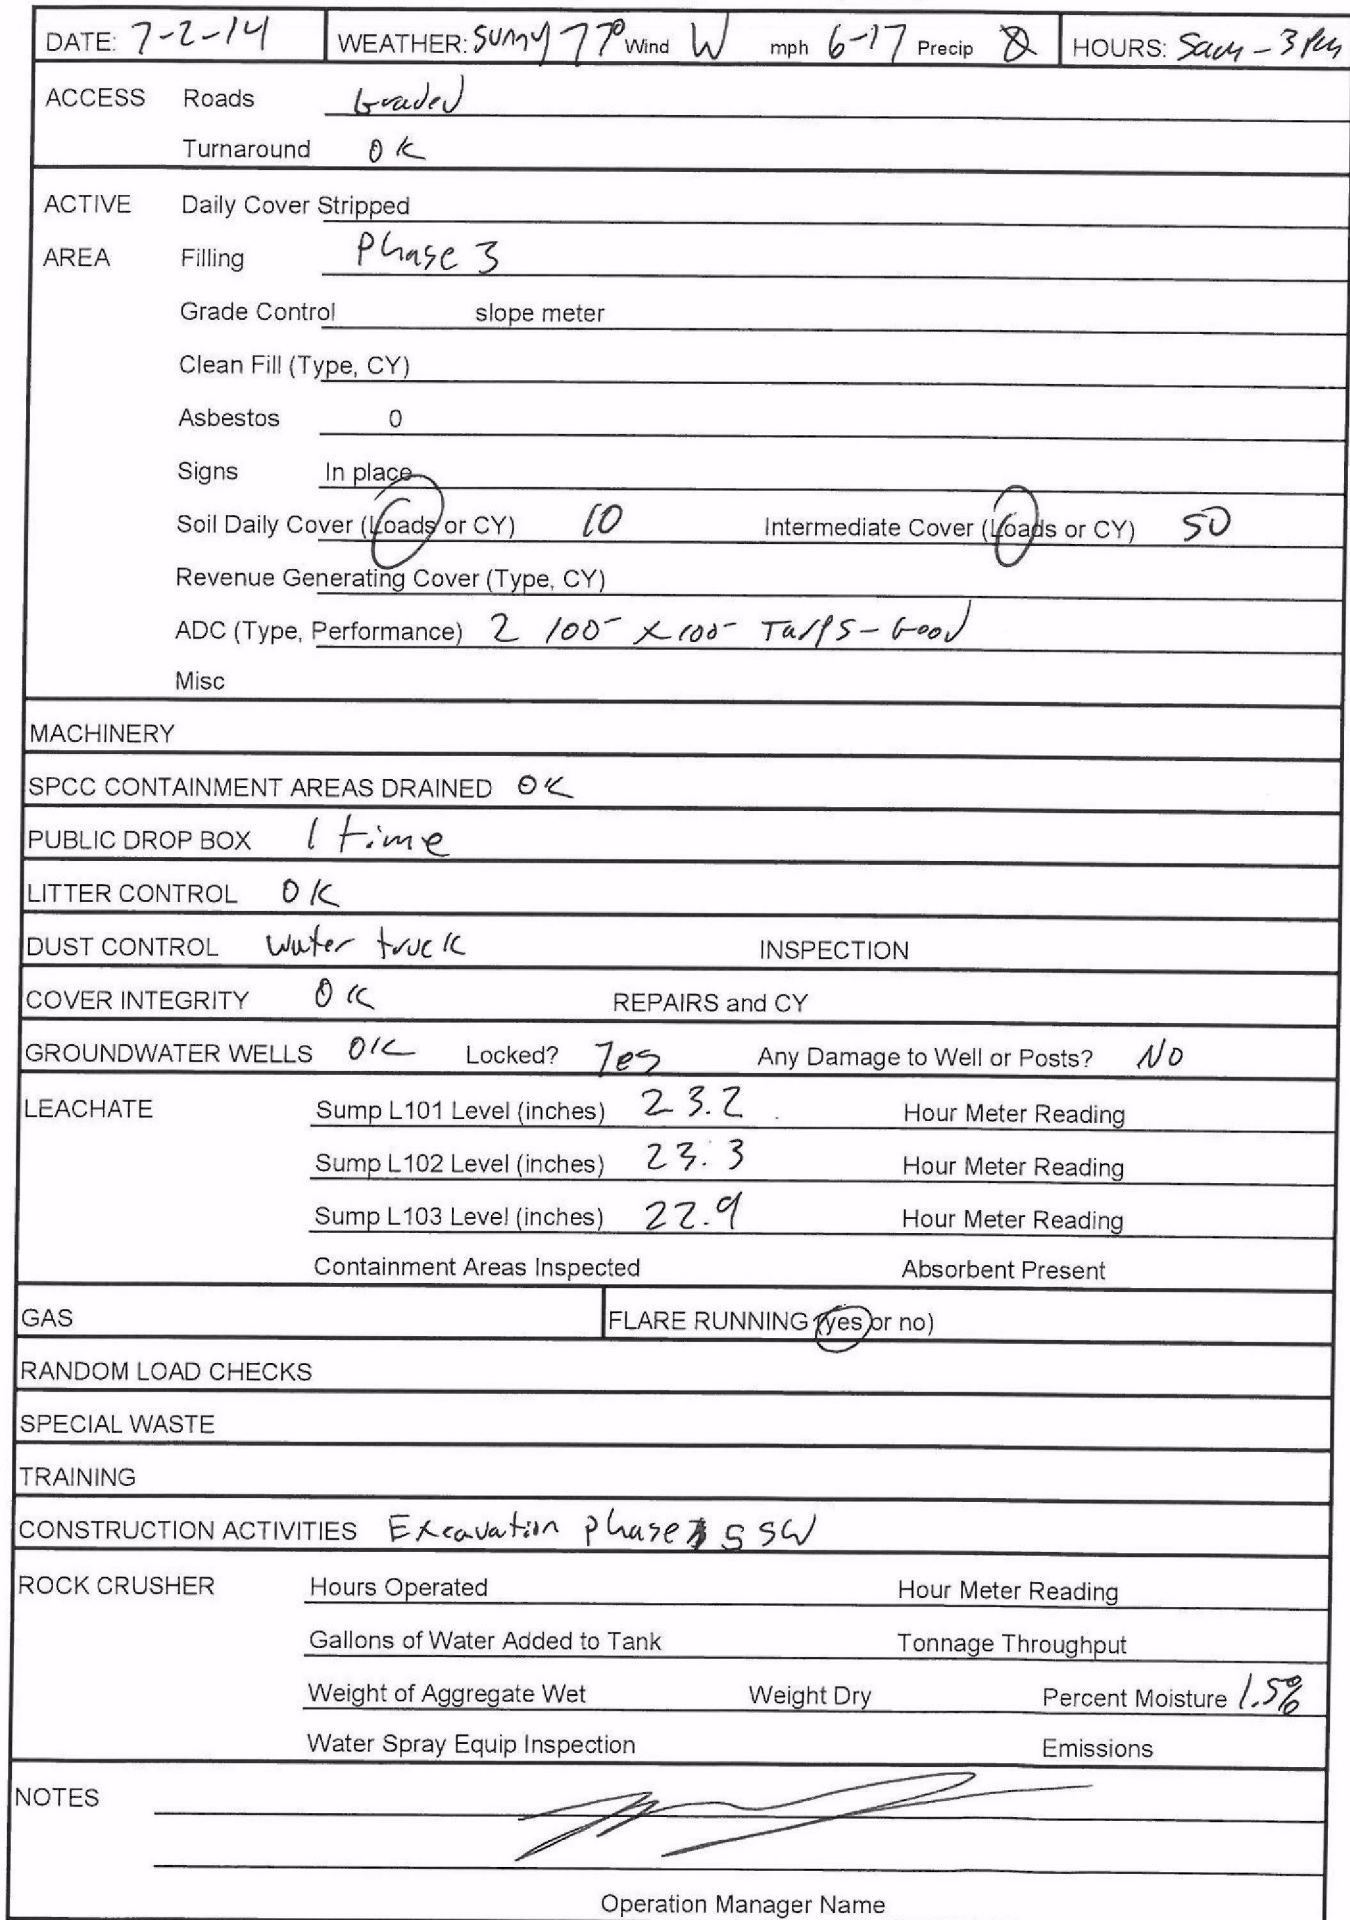 DATE: 7-2-14 WEATHER: Sunny 77° Wind W mph 6-17 Precip 0 HOURS: 5am - 3pm
ACCESS Roads Graded
Turnaround OK
ACTIVE Daily Cover Stripped
AREA Filling Phase 3
Grade Control slope meter
Clean Fill (Type, CY)
Asbestos 0
Signs In place
Soil Daily Cover (Loads or CY) 10 Intermediate Cover (Loads or CY) 50
Revenue Generating Cover (Type, CY)
ADC (Type, Performance) 2 100- x 100- Tarps - Good
Misc
MACHINERY
SPCC CONTAINMENT AREAS DRAINED OK
PUBLIC DROP BOX 1 time
LITTER CONTROL OK
DUST CONTROL Water truck INSPECTION
COVER INTEGRITY OK REPAIRS and CY
GROUNDWATER WELLS OK Locked? Yes Any Damage to Well or Posts? NO
LEACHATE Sump L101 Level (inches) 23.2 Hour Meter Reading
Sump L102 Level (inches) 23.3 Hour Meter Reading
Sump L103 Level (inches) 22.9 Hour Meter Reading
Containment Areas Inspected Absorbent Present
GAS FLARE RUNNING (yes or no)
RANDOM LOAD CHECKS
SPECIAL WASTE
TRAINING
CONSTRUCTION ACTIVITIES Excavation phase 5 SW
ROCK CRUSHER Hours Operated Hour Meter Reading
Gallons of Water Added to Tank Tonnage Throughput
Weight of Aggregate Wet Weight Dry Percent Moisture 1.5%
Water Spray Equip Inspection Emissions
NOTES
Operation Manager Name